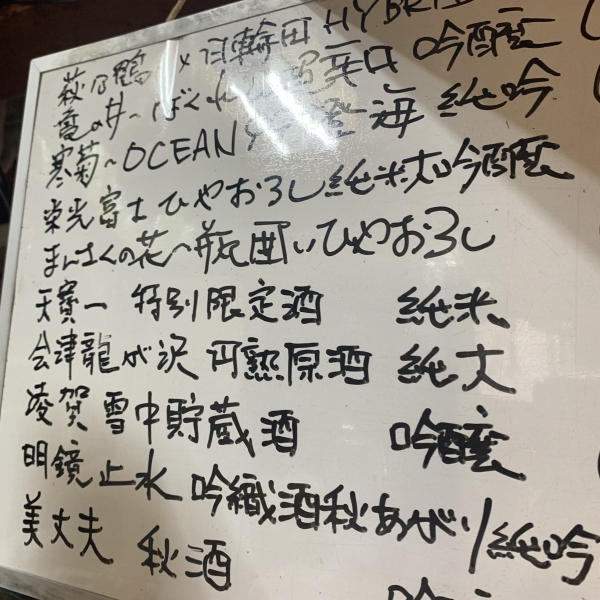 萩乃鶴 × 日輪田 HYBRID
竜の井～ばくれん 超辛口 吟醸
寒菊～OCEAN99 澄海 純吟
栄光冨士 ひやおろし 純米大吟醸
まんさくの花～瓶囲いひやおろし
天寶一 特別限定酒 純米
会津龍が沢 円熟原酒 純大
凌賀 雪中貯蔵酒 吟醸
明鏡止水 吟織酒秋あがり 純吟
美丈夫 秋酒